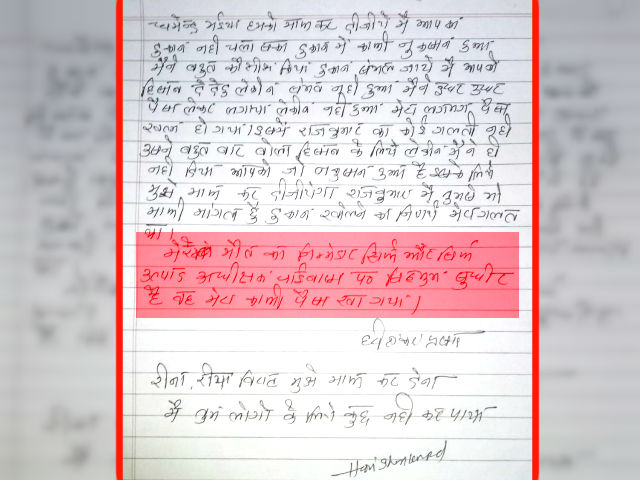 धर्मेन्द्र भईया हमको माफ कर दीजीये मै आपका
दुकान नही चला सका दुकान मे काफी नुकसान हुआ
मैने बहुत कौसीस किया दुकान संभल जाये मै आपको
हिसाब दे देइ लेकीन संभव नही हुआ मैने इधर उधर
पैसा लेकर लगाया लेकीन नही हुआ मेरा लगभग पैसा
खत्म हो गया। इसमे राजकुमार का कोई गलती नही
उसने बहुत बार बोला हिसाब के लिये लेकीन मैने ही
नही दिया आपको जो नुकसान हुआ है इसके लिये
मुझे माफ कर दीजीयेगा राजकुमार मै तुमसे भी
माफी मांगता हुँ दुकान खोलने का निर्णय मेरा गलत
था।
मेरे मौत का जिम्मेदार सिर्फ और सिर्फ
उत्पाद अधीक्षक
है वह मेरा काफी पैसा खा गया।
रीना, रीया विराट मुझे माफ कर देना
मै तुम लोगो के लिये कुछ नही कर पाया